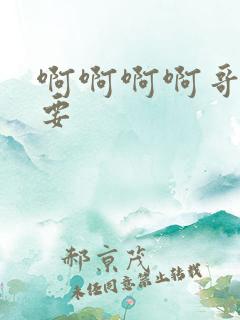 啊啊啊啊哥
要
郝京茂
未经同意禁止转载